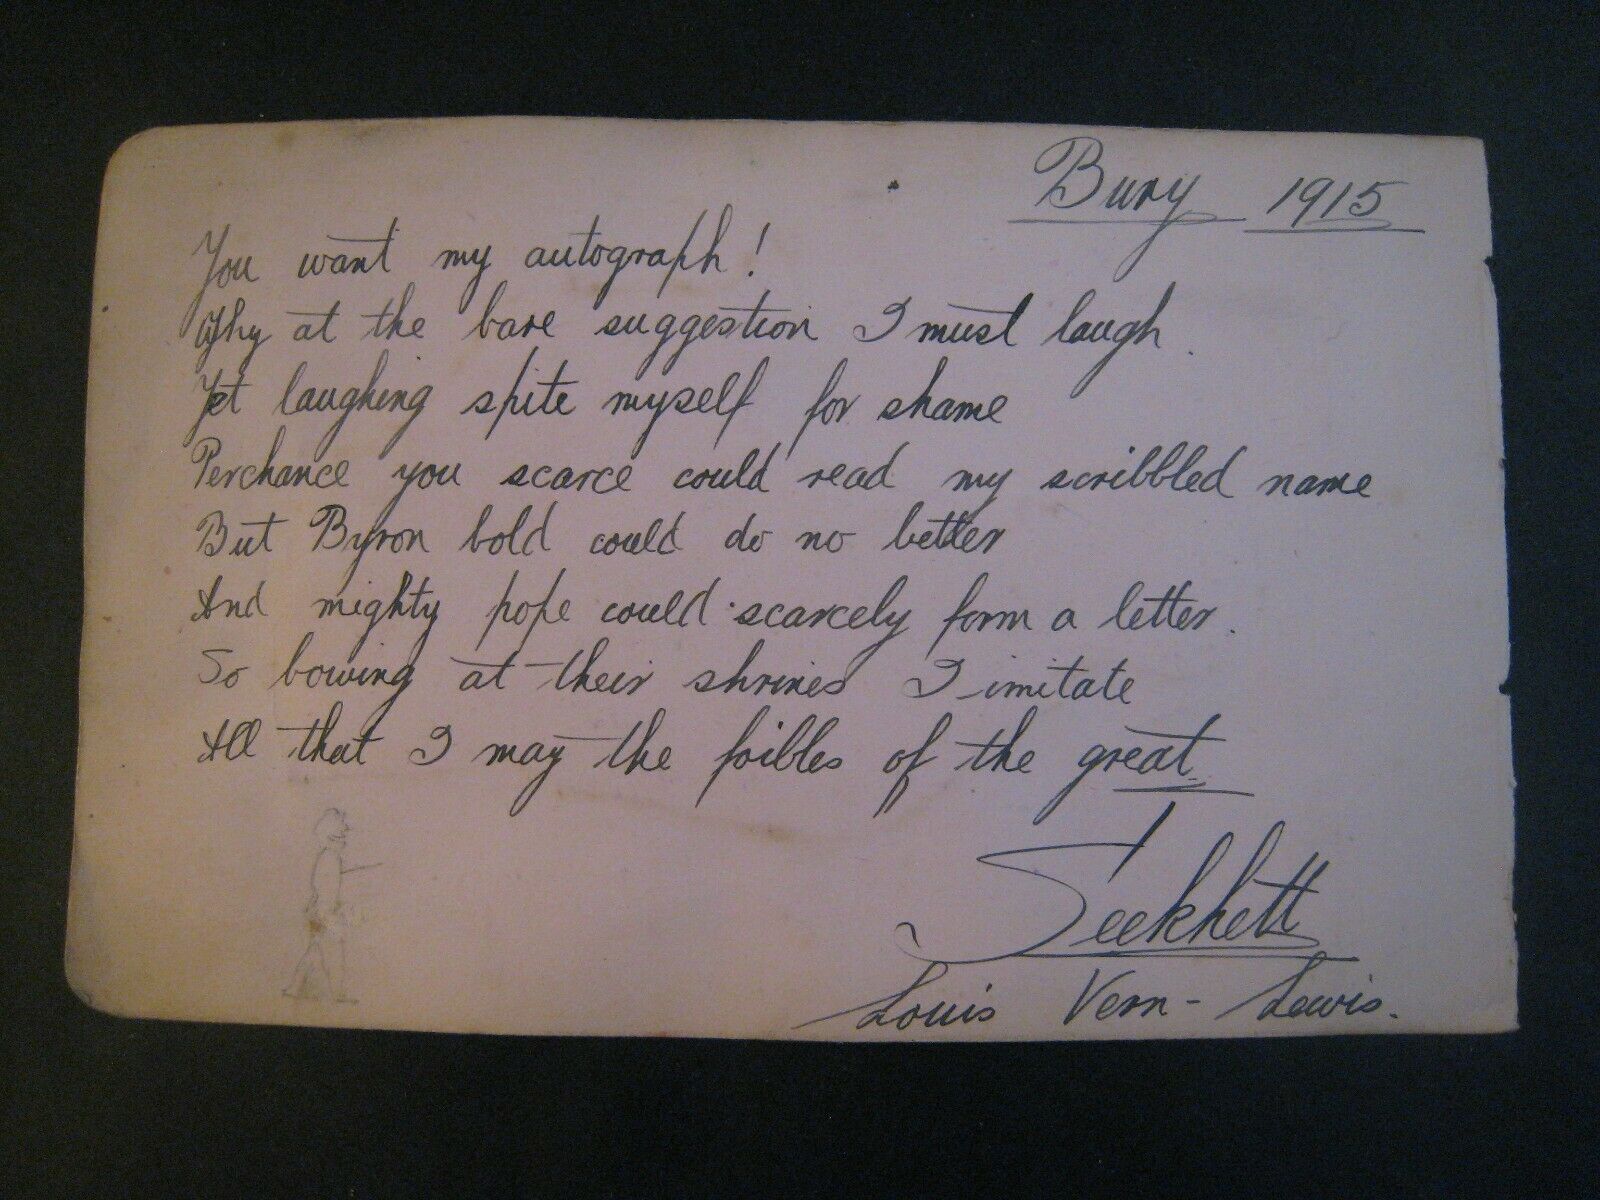 Bury 1915
You want my autograph!
Why at the bare suggestion I must laugh.
Yet laughing spite myself for shame
Perchance you scarce could read my scribbled name
But Byron bold could do no better
And mighty pope could scarcely form a letter.
So bowing at their shrines I imitate
All that I may the foibles of the great
Louis Vern-Lewis.